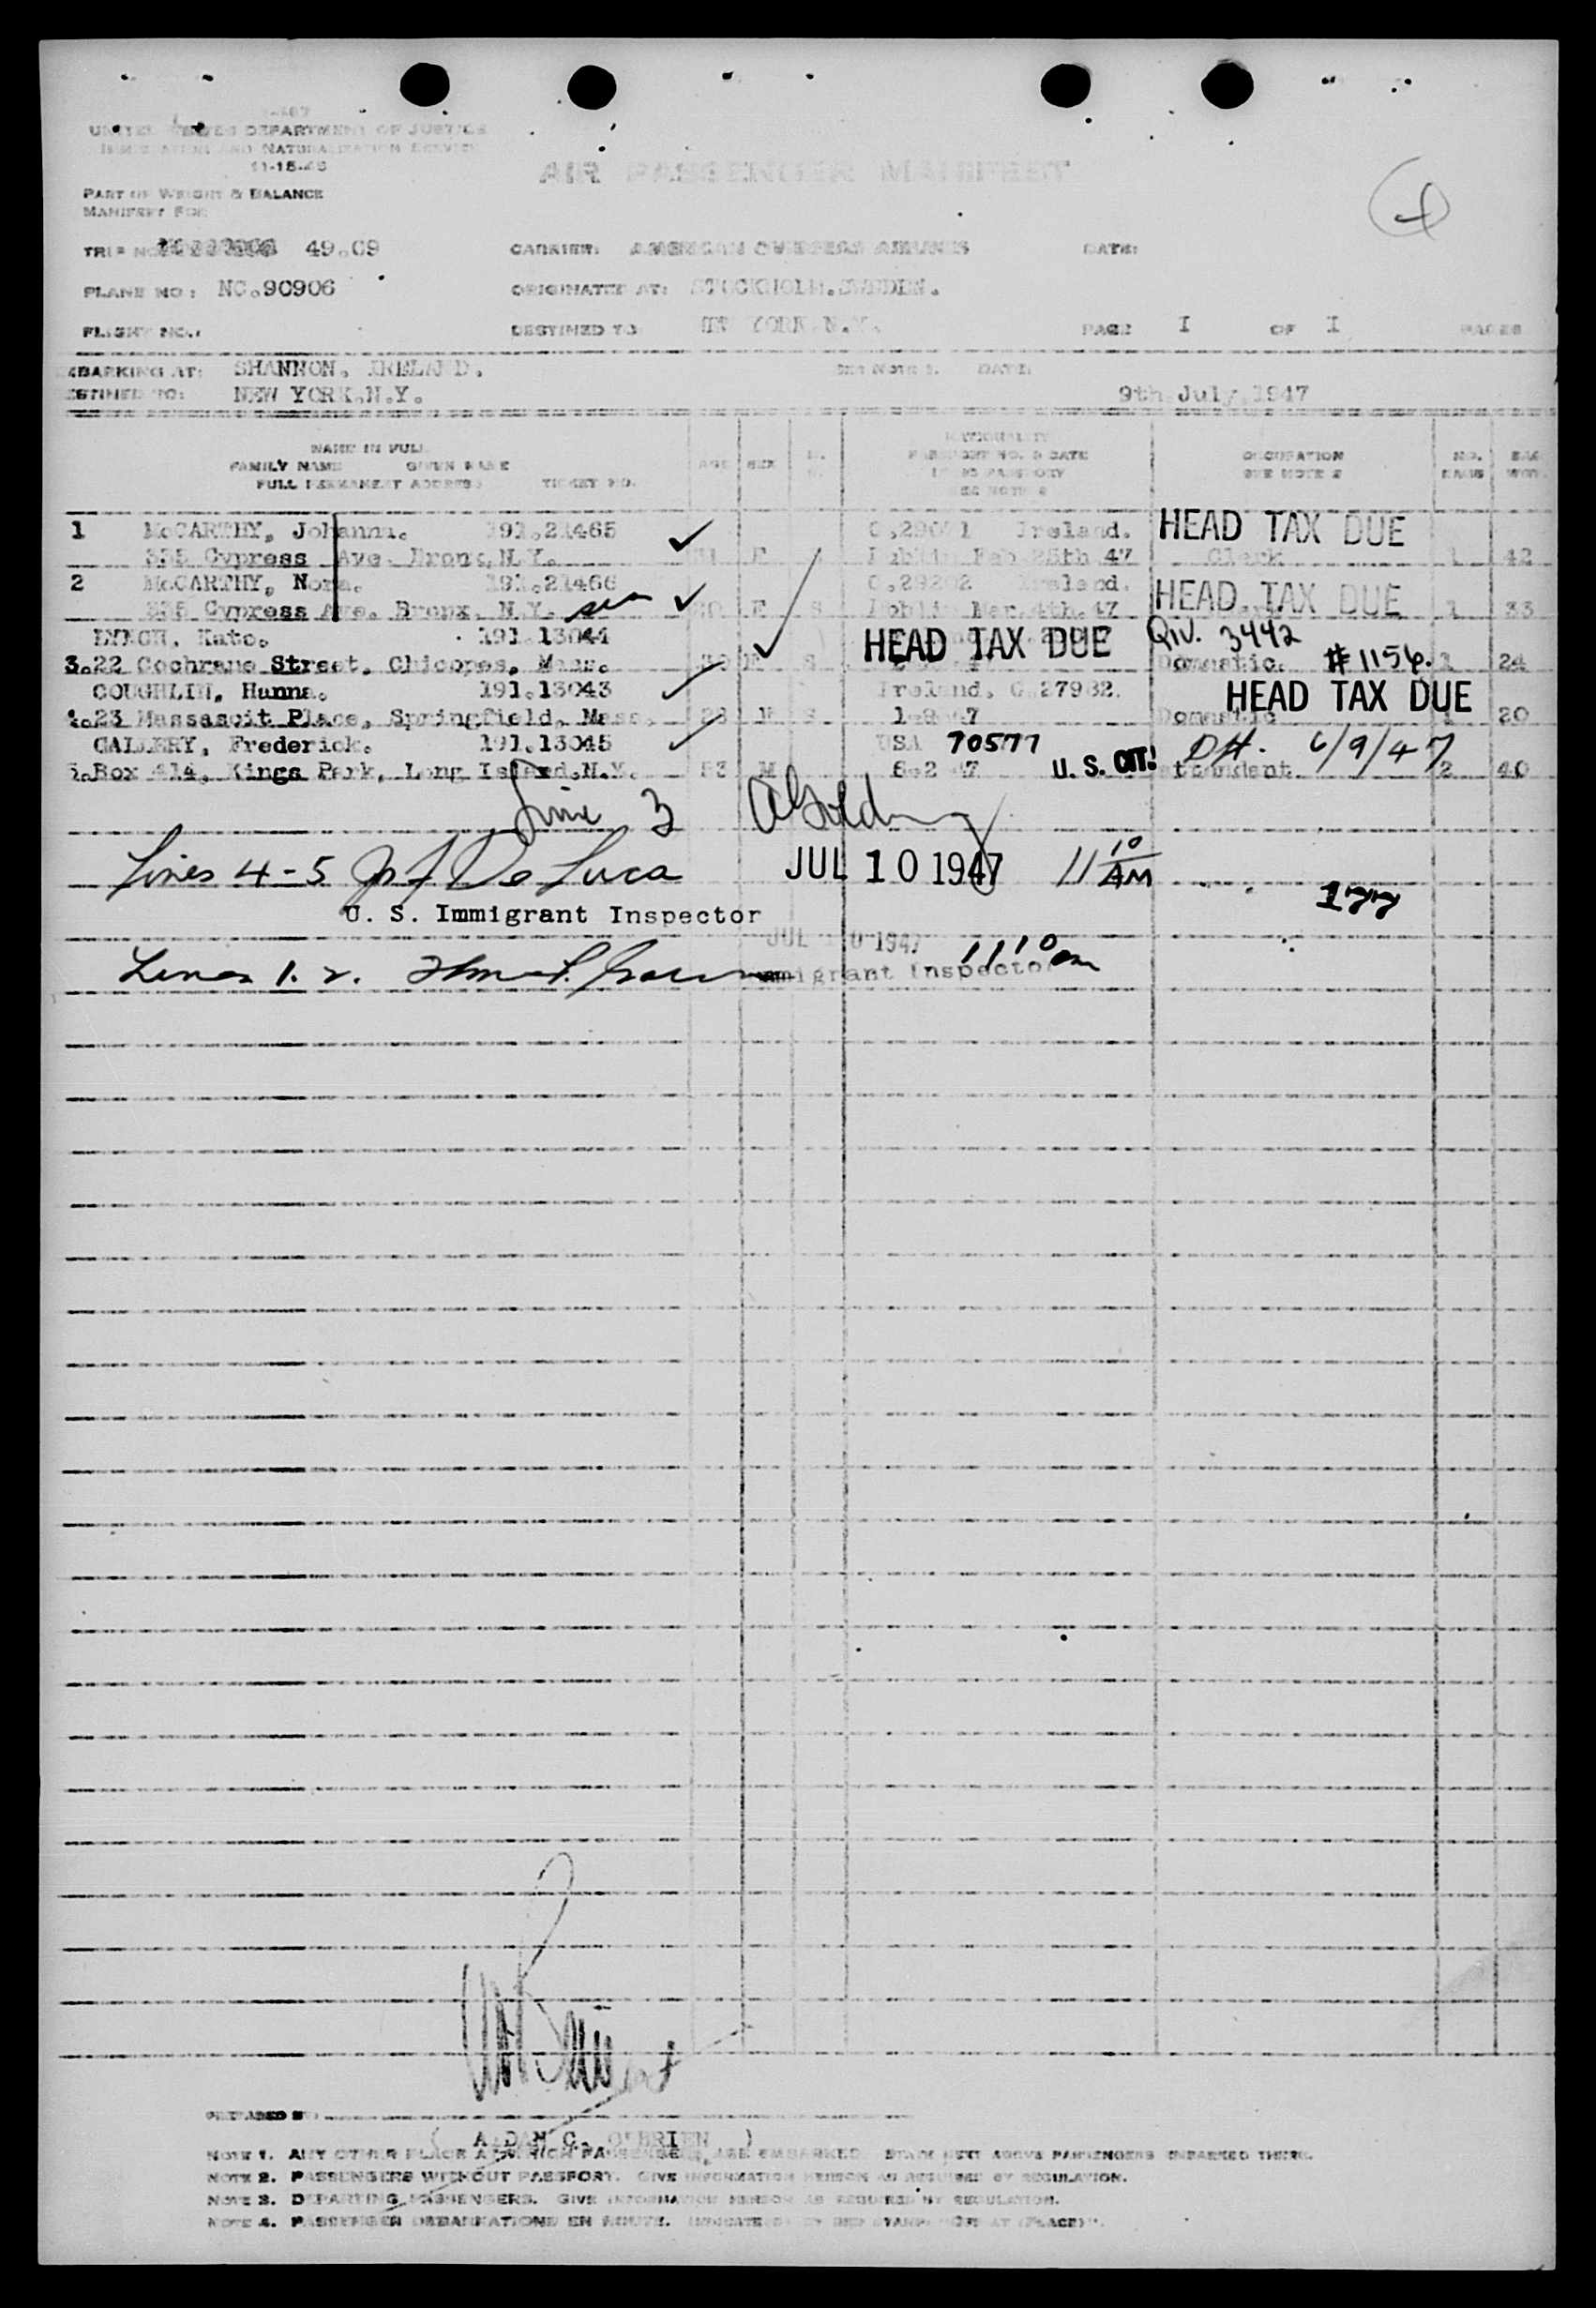 UNITED STATES DEPARTMENT OF JUSTICE
IMMIGRATION AND NATURALIZATION SERVICE
11-15-45
AIR PASSENGER MANIFEST
PART OF WEIGHT & BALANCE
MANIFEST FOR
TRIP NO. 49.09 CARRIER: AMERICAN OVERSEAS AIRLINES DATE:
PLANE NO: NC.90906 ORIGINATED AT: STOCKHOLM.SWEDEN.
FLIGHT NO.: DESTINED TO: NEW YORK.N.Y. PAGE I OF I PAGES
EMBARKING AT: SHANNON. IRELAND. SEE NOTE 1. DATE:
DESTINED TO: NEW YORK.N.Y. 9th July 1947
NAME IN FULL
FAMILY NAME GIVEN NAME
FULL PERMANENT ADDRESS TICKET NO.
AGE SEX
NATIONALITY
PASSPORT NO. & DATE
OCCUPATION
SEE NOTE 2
NO. BAGS
BAG WGT.
1 McCARTHY, Johanna. 191.21465 Ireland. HEAD TAX DUE
335 Cypress Ave. Bronx, N.Y. F Dublin Feb 25th 47 Clerk 1 42
2 McCARTHY, Nora. 191.21466 C.29202 Ireland. HEAD TAX DUE
335 Cypress Ave. Bronx. N.Y. F S Dublin Mar.4th.47 1 33
LYNCH, Kate. 191.13044 HEAD TAX DUE QIV. 3442
3.22 Cochrane Street, Chicopee, Mass. S Domestic. #1156. 1 24
COUGHLIN, Hanna. 191.13043 Ireland. C.27982. HEAD TAX DUE
4.23 Massasoit Place, Springfield, Mass. 28 F S Domestic 1 20
GALLERY, Frederick. 191.13045 USA 70577 U.S. CIT! 6/9/47
5.Box 414, Kings Park, Long Island.N.Y. 53 M 2 40
Line 3
Lines 4-5 De Luca JUL 10 1947 11 10 AM
177
U. S. Immigrant Inspector
JUL 10 1947 11 10 am
Lines 1. 2. Immigrant Inspector
PREPARED BY
( AIDAN C. O'BRIEN )
NOTE 1. ANY OTHER PLACE AT WHICH PASSENGERS ARE EMBARKED. STATE JUST ABOVE PASSENGERS EMBARKED THERE.
NOTE 2. PASSENGERS WITHOUT PASSPORT. GIVE INFORMATION HEREON AS REQUIRED BY REGULATION.
NOTE 3. DEPARTING PASSENGERS. GIVE INFORMATION HEREON AS REQUIRED BY REGULATION.
NOTE 4. PASSENGER DEBARKATIONS EN ROUTE. INDICATE BY RED STAMP "OFF AT (PLACE)".